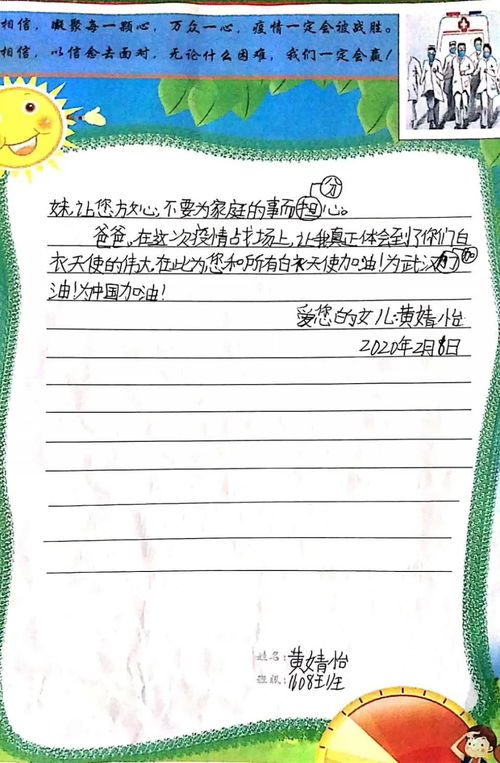 相信，凝聚每一颗心，万众一心，疫情一定会被战胜。
相信，以信念去面对，无论什么困难，我们一定会赢！
分
妹，让您方欠心，不要为家庭的事而担心。
爸爸，在这次疫情占戈场上，让我真正体会到了你们白
衣天使的伟大，在此为您和所有白衣天使加油！为武汉加
油！为中国加油！
爱您的女儿：黄婧怡
2020年2月8日
姓名：黄婧怡
班级：1608班